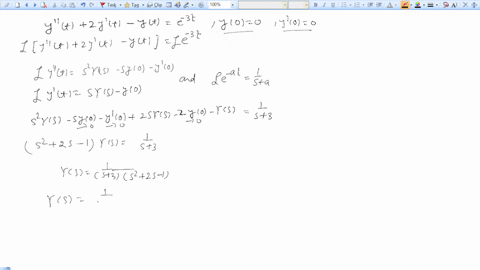 100%
y''(t) + 2y'(t) - y(t) = e^{-3t} , y(0)=0 , y'(0)=0
L[y''(t) + 2y'(t) - y(t)] = L e^{-3t}
L y''(t) = s²Y(s) - sy(0) - y'(0)
L y'(t) = sY(s) - y(0) and L e^{-at} = 1/(s+a)
s²Y(s) - sy(0) - y'(0) + 2sY(s) - 2y(0) - Y(s) = 1/(s+3)
→0 →0 →0
(s² + 2s - 1) Y(s) = 1/(s+3)
Y(s) = 1/((s+3)(s²+2s-1))
Y(s) = 1